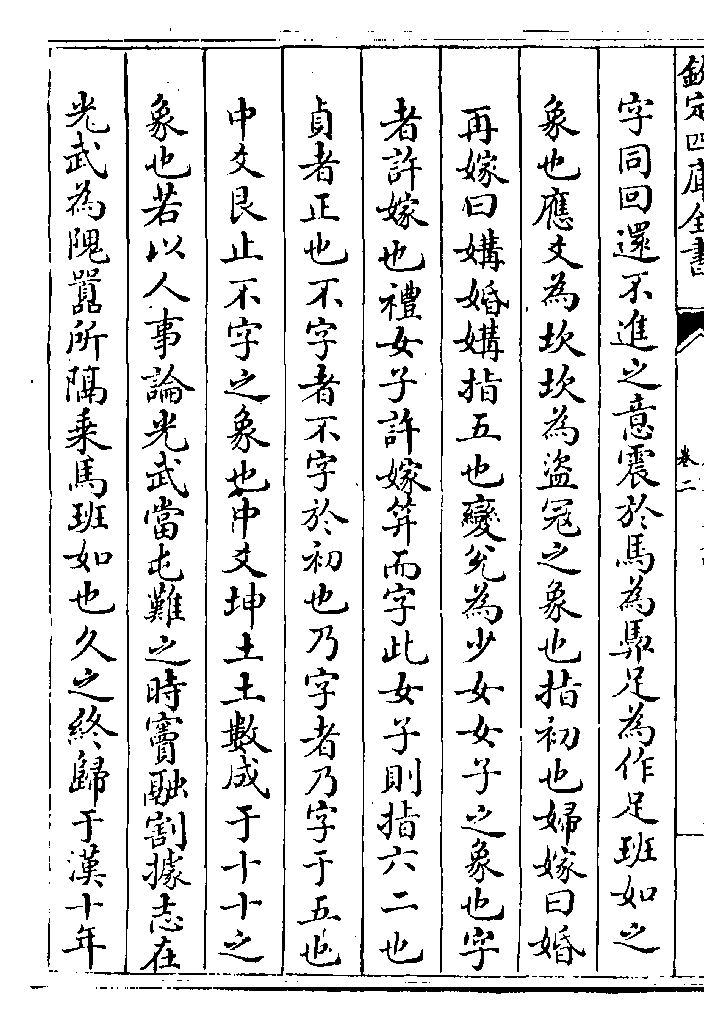 欽定四庫全書
卷二
字同回還不進之意震於馬為馵足為作足班如之
象也應爻為坎坎為盜寇之象也指初也婦嫁曰婚
再嫁曰媾婚媾指五也變兌為少女女子之象也字
者許嫁也禮女子許嫁筓而字此女子則指六二也
貞者正也不字者不字於初也乃字者乃字于五也
中爻艮止不字之象也中爻坤土土數成于十十之
象也若以人事論光武當屯難之時竇融割據志在
光武為隗囂所隔乘馬班如也久之終歸于漢十年